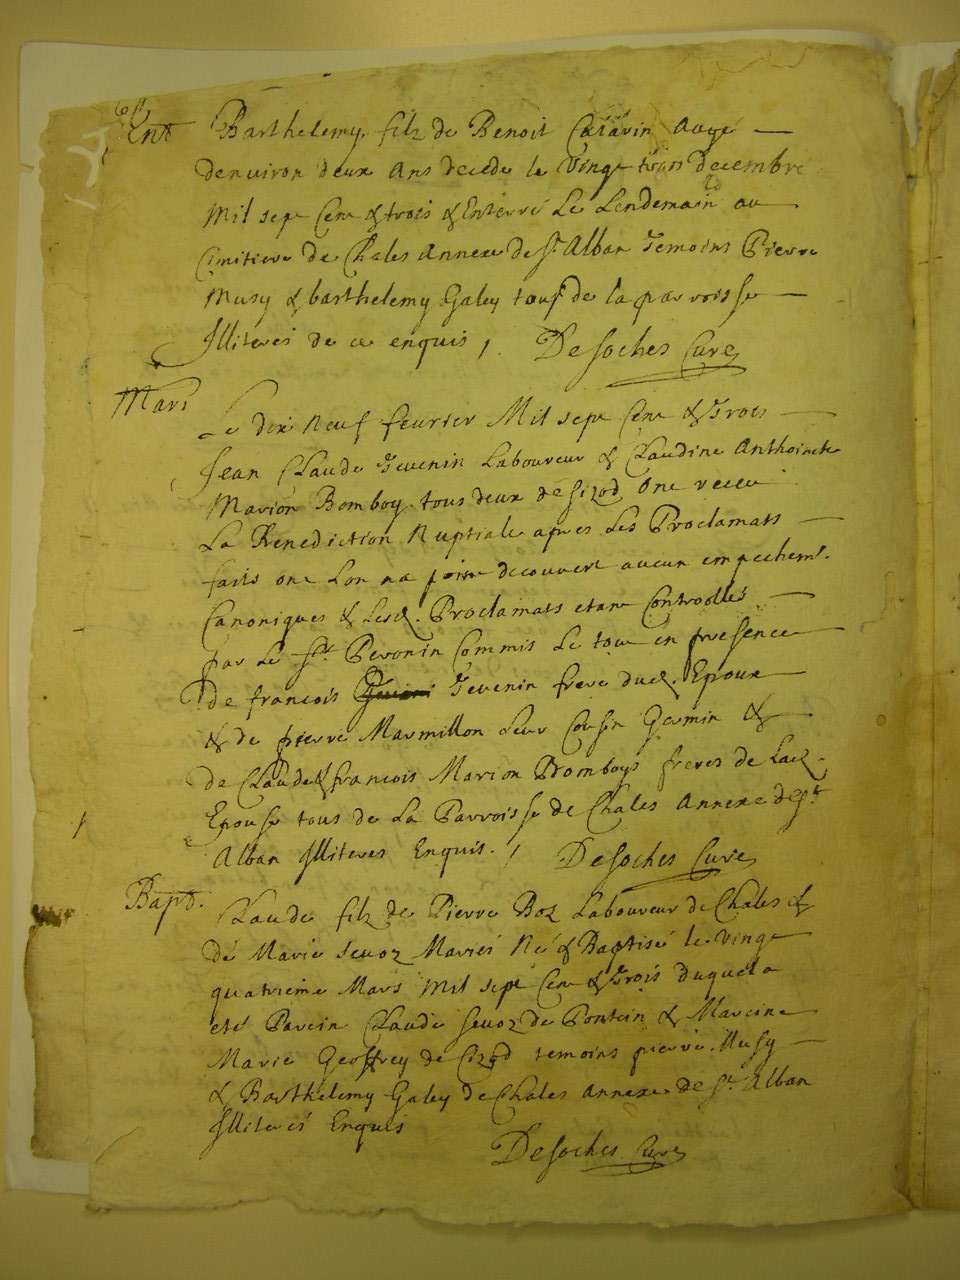 Ent Barthelemy filz de Benoit Caravin aagé
denuiron deux ans decedé le vingt trois decembre
Mil sept Cent & trois & Enterré Le Lendemain au
Cimitiere de Chales Annexe de St Alban Temoins Pierre
Musy & barthelemy Galey tous de la parroisse
Illiterés de ce enquis, Desoches Curé
Mari Le dix Neuf feurier Mil sept Cent & Trois
Jean Claude Tevenin Laboureur & Claudine Anthoinette
Marion Bomboy tous deux de Sizod Ont receu
La Benediction Nuptiale apres Les Proclamats
faits ont Lon na point decouvert aucun empechemt.
Canoniques & Lesd. Proclamats etant Controollés
par Le Sr Peronin Commis Le tout en presence
de francois Tevenin frere dud. Epoux
& de pierre Marmillon Leur Cousin Germin &
de Claude & francois Marion Bomboys freres de Lad.
Epouse tous de La Parroisse de Chales Annexe de St
Alban Illiteres Enquis., Desoches Curé
Bapt. Claude filz de Pierre Boz Laboureur de Chales &
de Marie Sevoz Mariés Né & Baptisé le vingt
quatrieme Mars Mil sept Cent & Trois duquel a
eté Parein Claude Sevoz de Pontein & Mareine
Marie Geoffrey de Cizod temoins pierre Musy
& Barthelemy Galey de Chales Annexe de St Alban
Illiterés Enquis
Desoches Curé